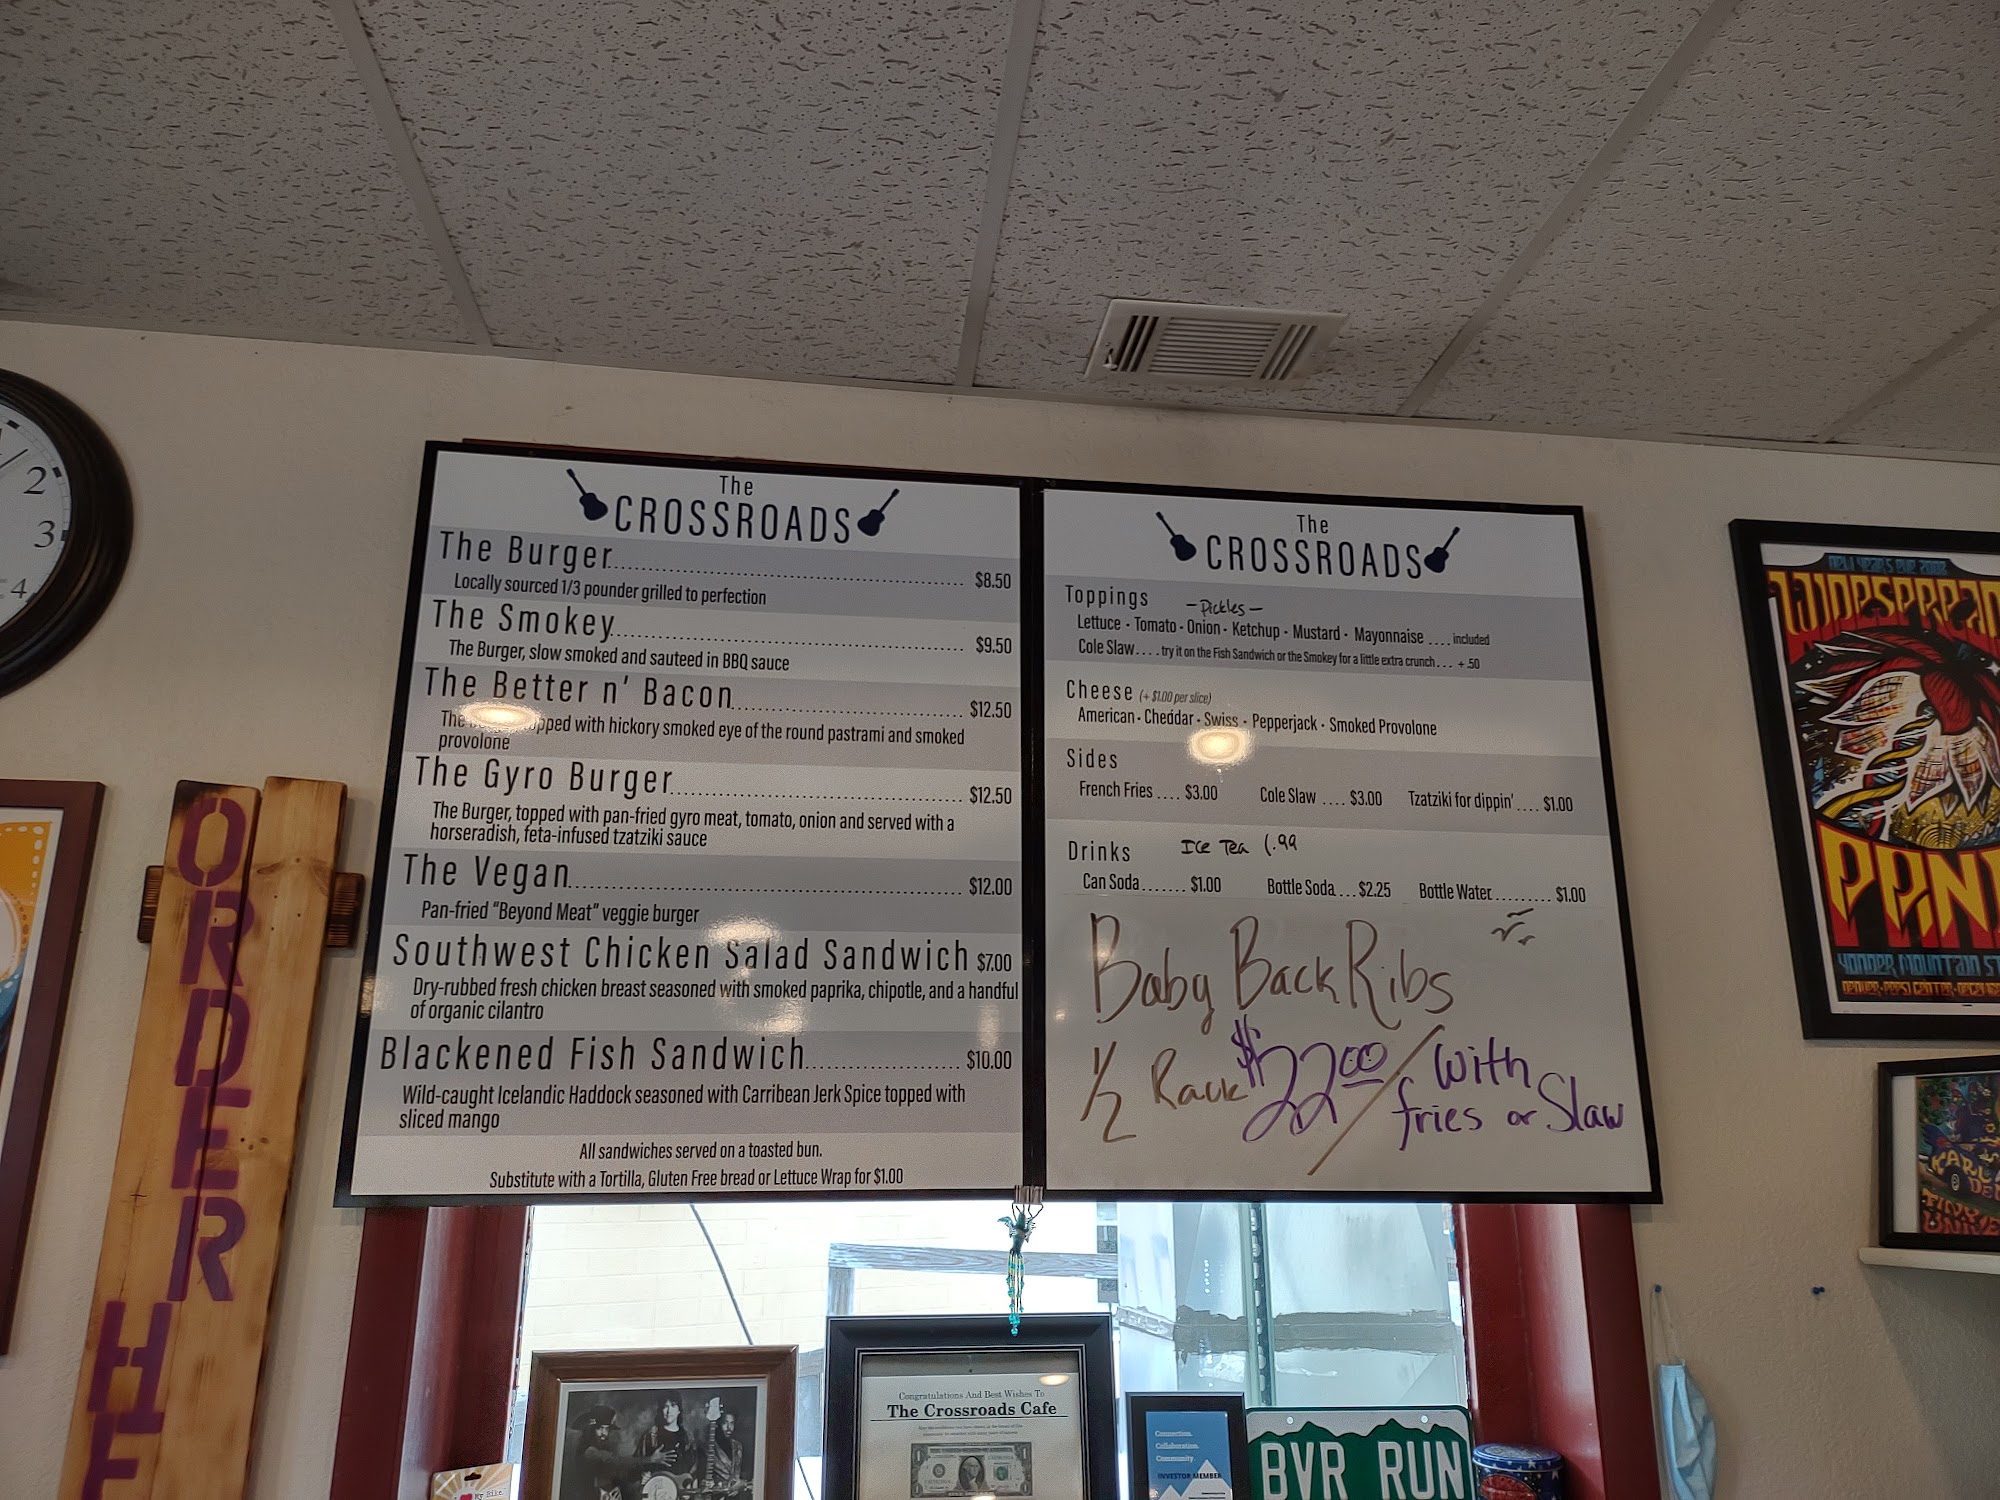 The
CROSSROADS
The Burger................ $8.50
Locally sourced 1/3 pounder grilled to perfection
The Smokey................ $9.50
The Burger, slow smoked and sauteed in BBQ sauce
The Better n' Bacon................ $12.50
The topped with hickory smoked eye of the round pastrami and smoked
provolone
The Gyro Burger................ $12.50
The Burger, topped with pan-fried gyro meat, tomato, onion and served with a
horseradish, feta-infused tzatziki sauce
The Vegan................ $12.00
Pan-fried "Beyond Meat" veggie burger
Southwest Chicken Salad Sandwich $7.00
Dry-rubbed fresh chicken breast seasoned with smoked paprika, chipotle, and a handful
of organic cilantro
Blackened Fish Sandwich................ $10.00
Wild-caught Icelandic Haddock seasoned with Carribean Jerk Spice topped with
sliced mango
All sandwiches served on a toasted bun.
Substitute with a Tortilla, Gluten Free bread or Lettuce Wrap for $1.00
The
CROSSROADS
Toppings - Pickles -
Lettuce - Tomato - Onion - Ketchup - Mustard - Mayonnaise .... included
Cole Slaw.... try it on the Fish Sandwich or the Smokey for a little extra crunch... + .50
Cheese (+ $1.00 per slice)
American - Cheddar - Swiss - Pepperjack - Smoked Provolone
Sides
French Fries .... $3.00 Cole Slaw .... $3.00 Tzatziki for dippin' .... $1.00
Drinks Ice Tea 1.99
Can Soda....... $1.00 Bottle Soda....$2.25 Bottle Water......... $1.00
Baby Back Ribs
1/2 Rack $22.00 / with
fries or Slaw
ORDER
HE
2
3
4
NEW YEARS EVE 2002
WIDESPREAD
PANI
YONDER MOUNTAIN ST
KARL
DE
Congratulations And Best Wishes To
The Crossroads Cafe
Connection.
Collaboration.
Community.
INVESTOR MEMBER
BVR RUN
My Bike